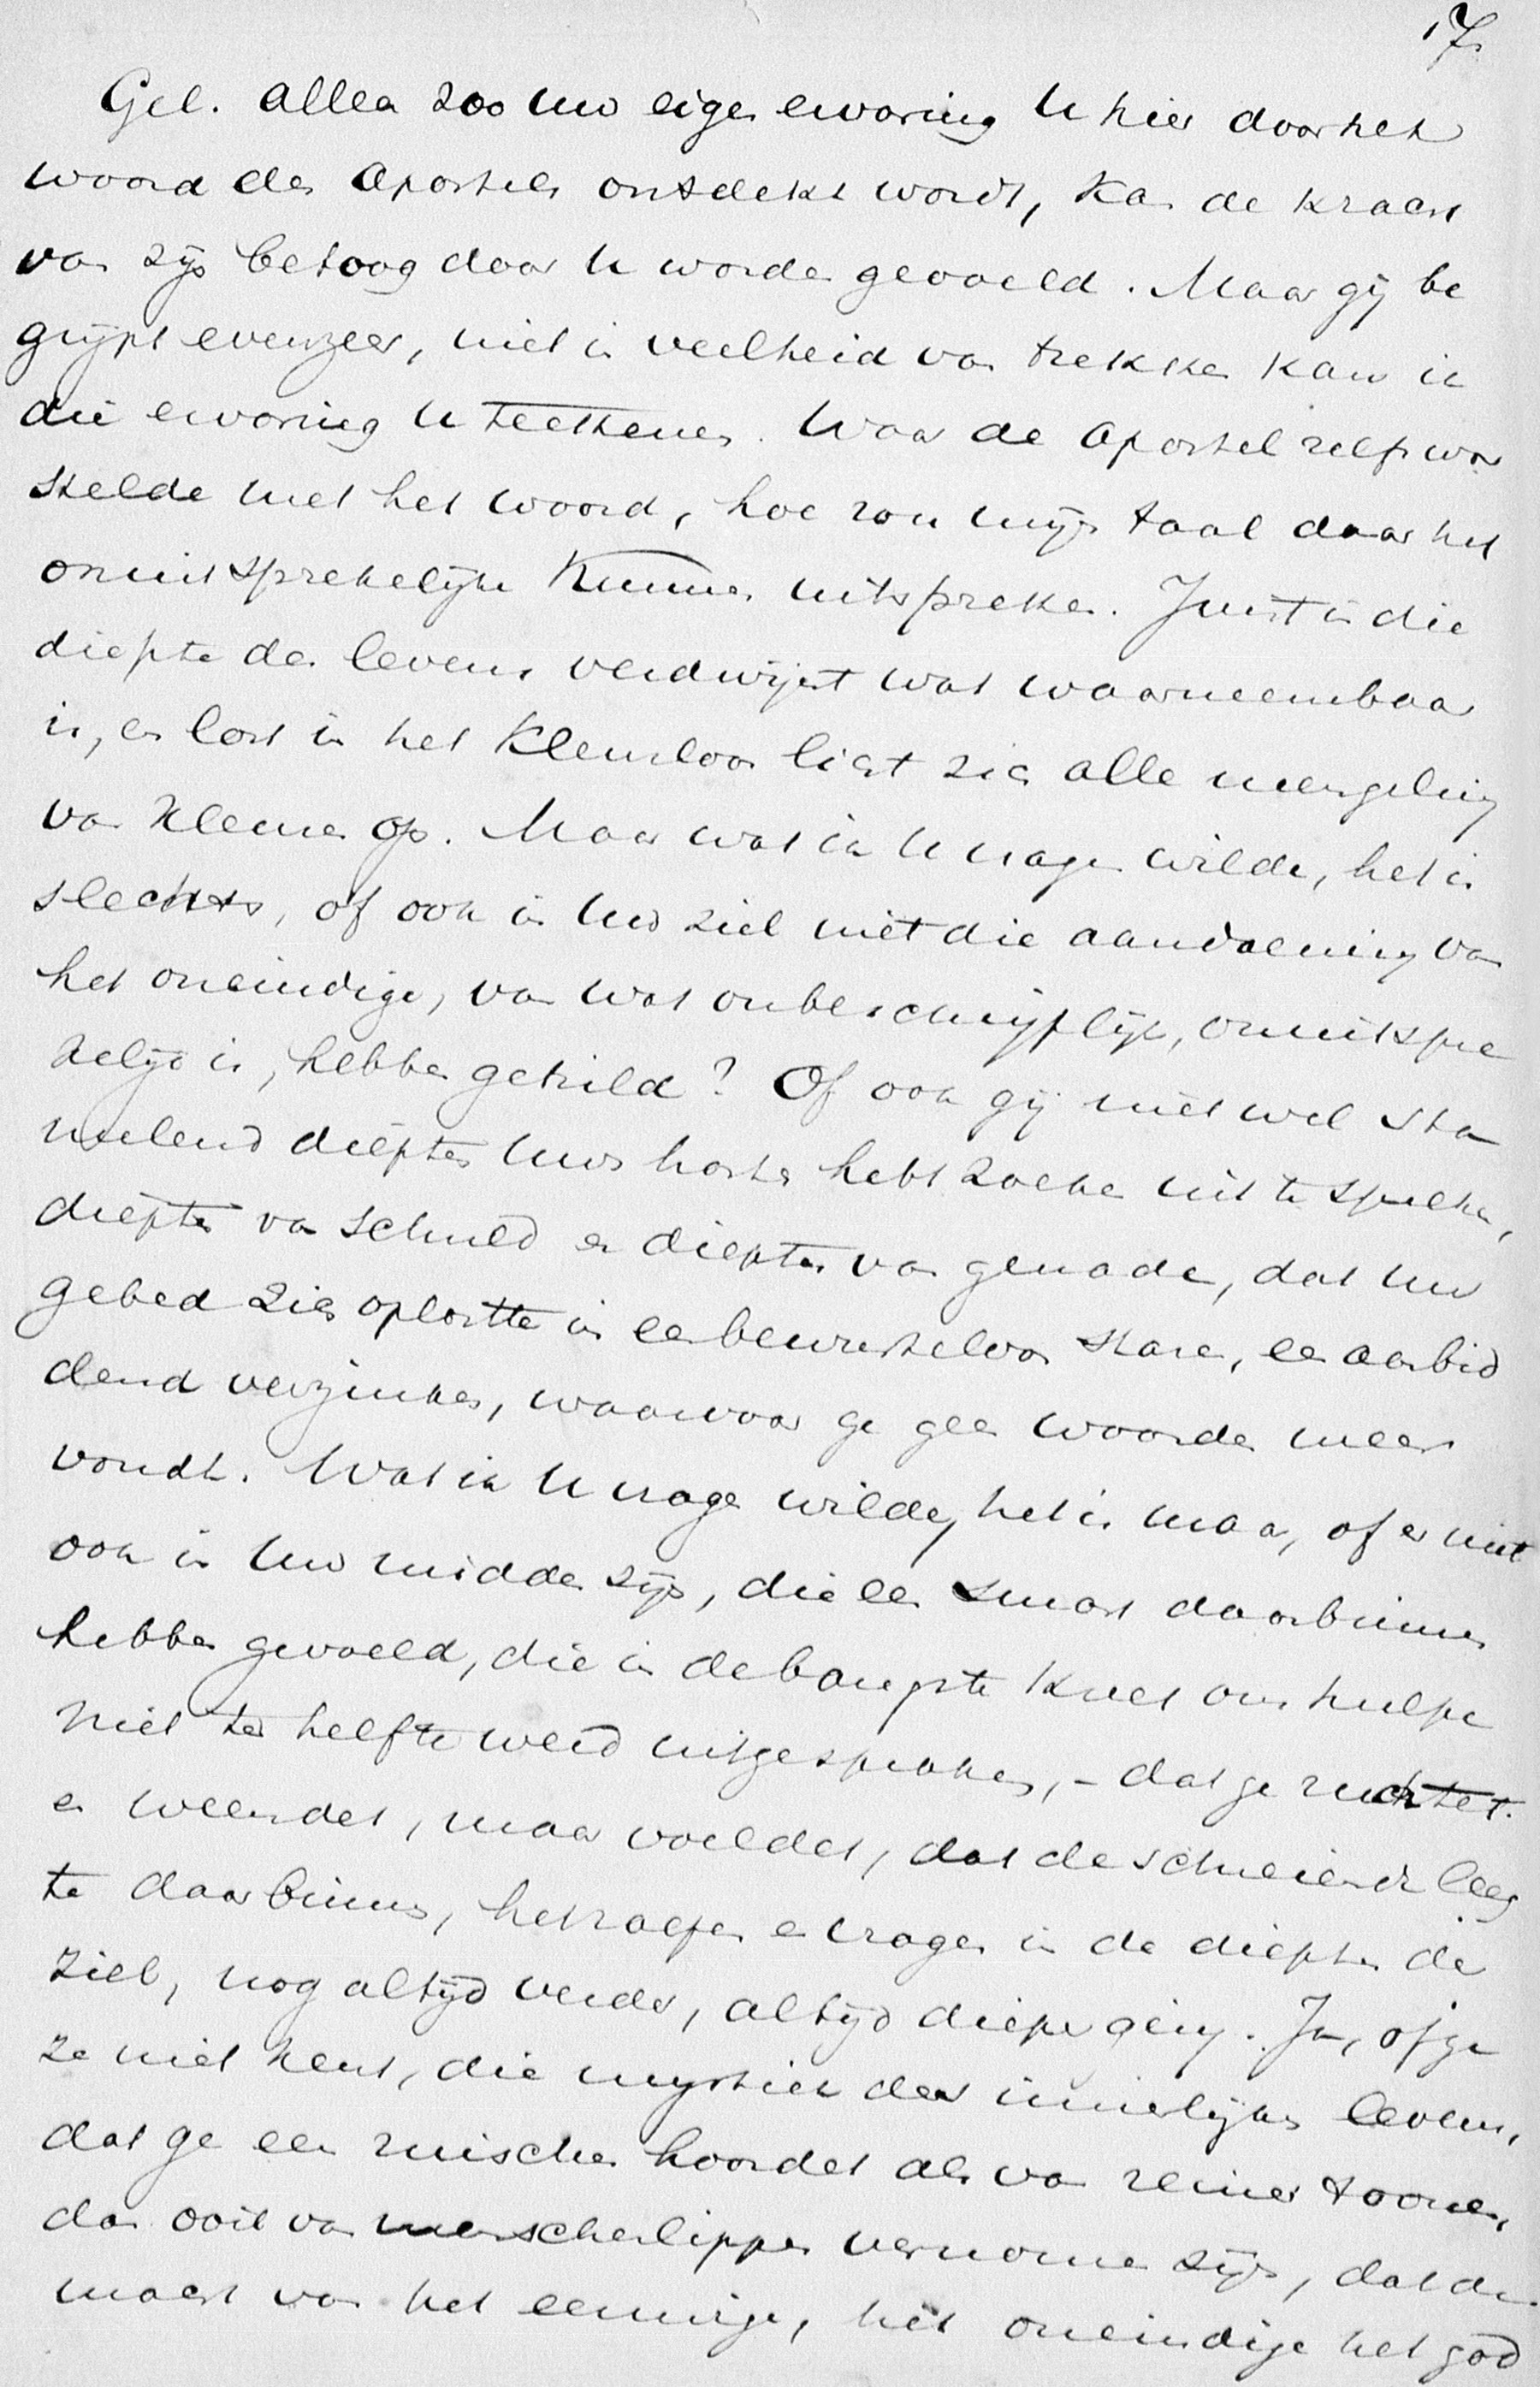 17.
Gel. Alleen zoo Uw eigen ervaring U hier door het
woord des Apostels ontdekt wordt, kan de kracht
van zijn betoog door U worden gevoeld. Maar gij be
grijpt evenzeer, niet in veelheid van trekken kan ik
die ervaring U teekenen. Waar de Apostel zelf wor
stelde met het woord, hoe zou mijn taal daar het
onuitsprekelijke kunnen uitspreken. Juist in die
diepte des levens verdwijnt wat waarneembaar
is, en lost in het kleurloos licht zich alle mengeling
van kleuren op. Maar wat ik U vragen wilde, het is
slechts, of ook in Uw ziel niet die aandoening van
het oneindige, van wat onbeschrijflijk, onuitspre
kelijk is, hebben getrild? Of ook gij niet wel sta
melend diepten Uws harten hebt zoeken uit te spreken,
diepten van schuld en diepten van genade, dat Uw
gebed zich oploste in een bewusteloos staren, een aanbid
dend verzinken, waarvoor ge geen woorden meer
vondt. Wat ik U vragen wilde, het is maar, of er niet
ook in Uw midden zijn, die een smart daarbinnen
hebben gevoeld, die in de bangste kreet om hulpe
niet ter helfte werd uitgesproken, – dat ge zuchttet
en weendet, maar voeldet, dat de schreiende leeg
te daarbinnen, het roepen en vragen in de diepten der
ziel, nog altijd verder, altijd dieper ging. Ja, of ge
ze niet kent, die mystiek des innerlijken levens,
dat ge een ruischen hoordet als van reiner toonen,
dan ooit van menschenlippen vernomen zijn, dat de
macht van het eeuwige, het oneindige het god